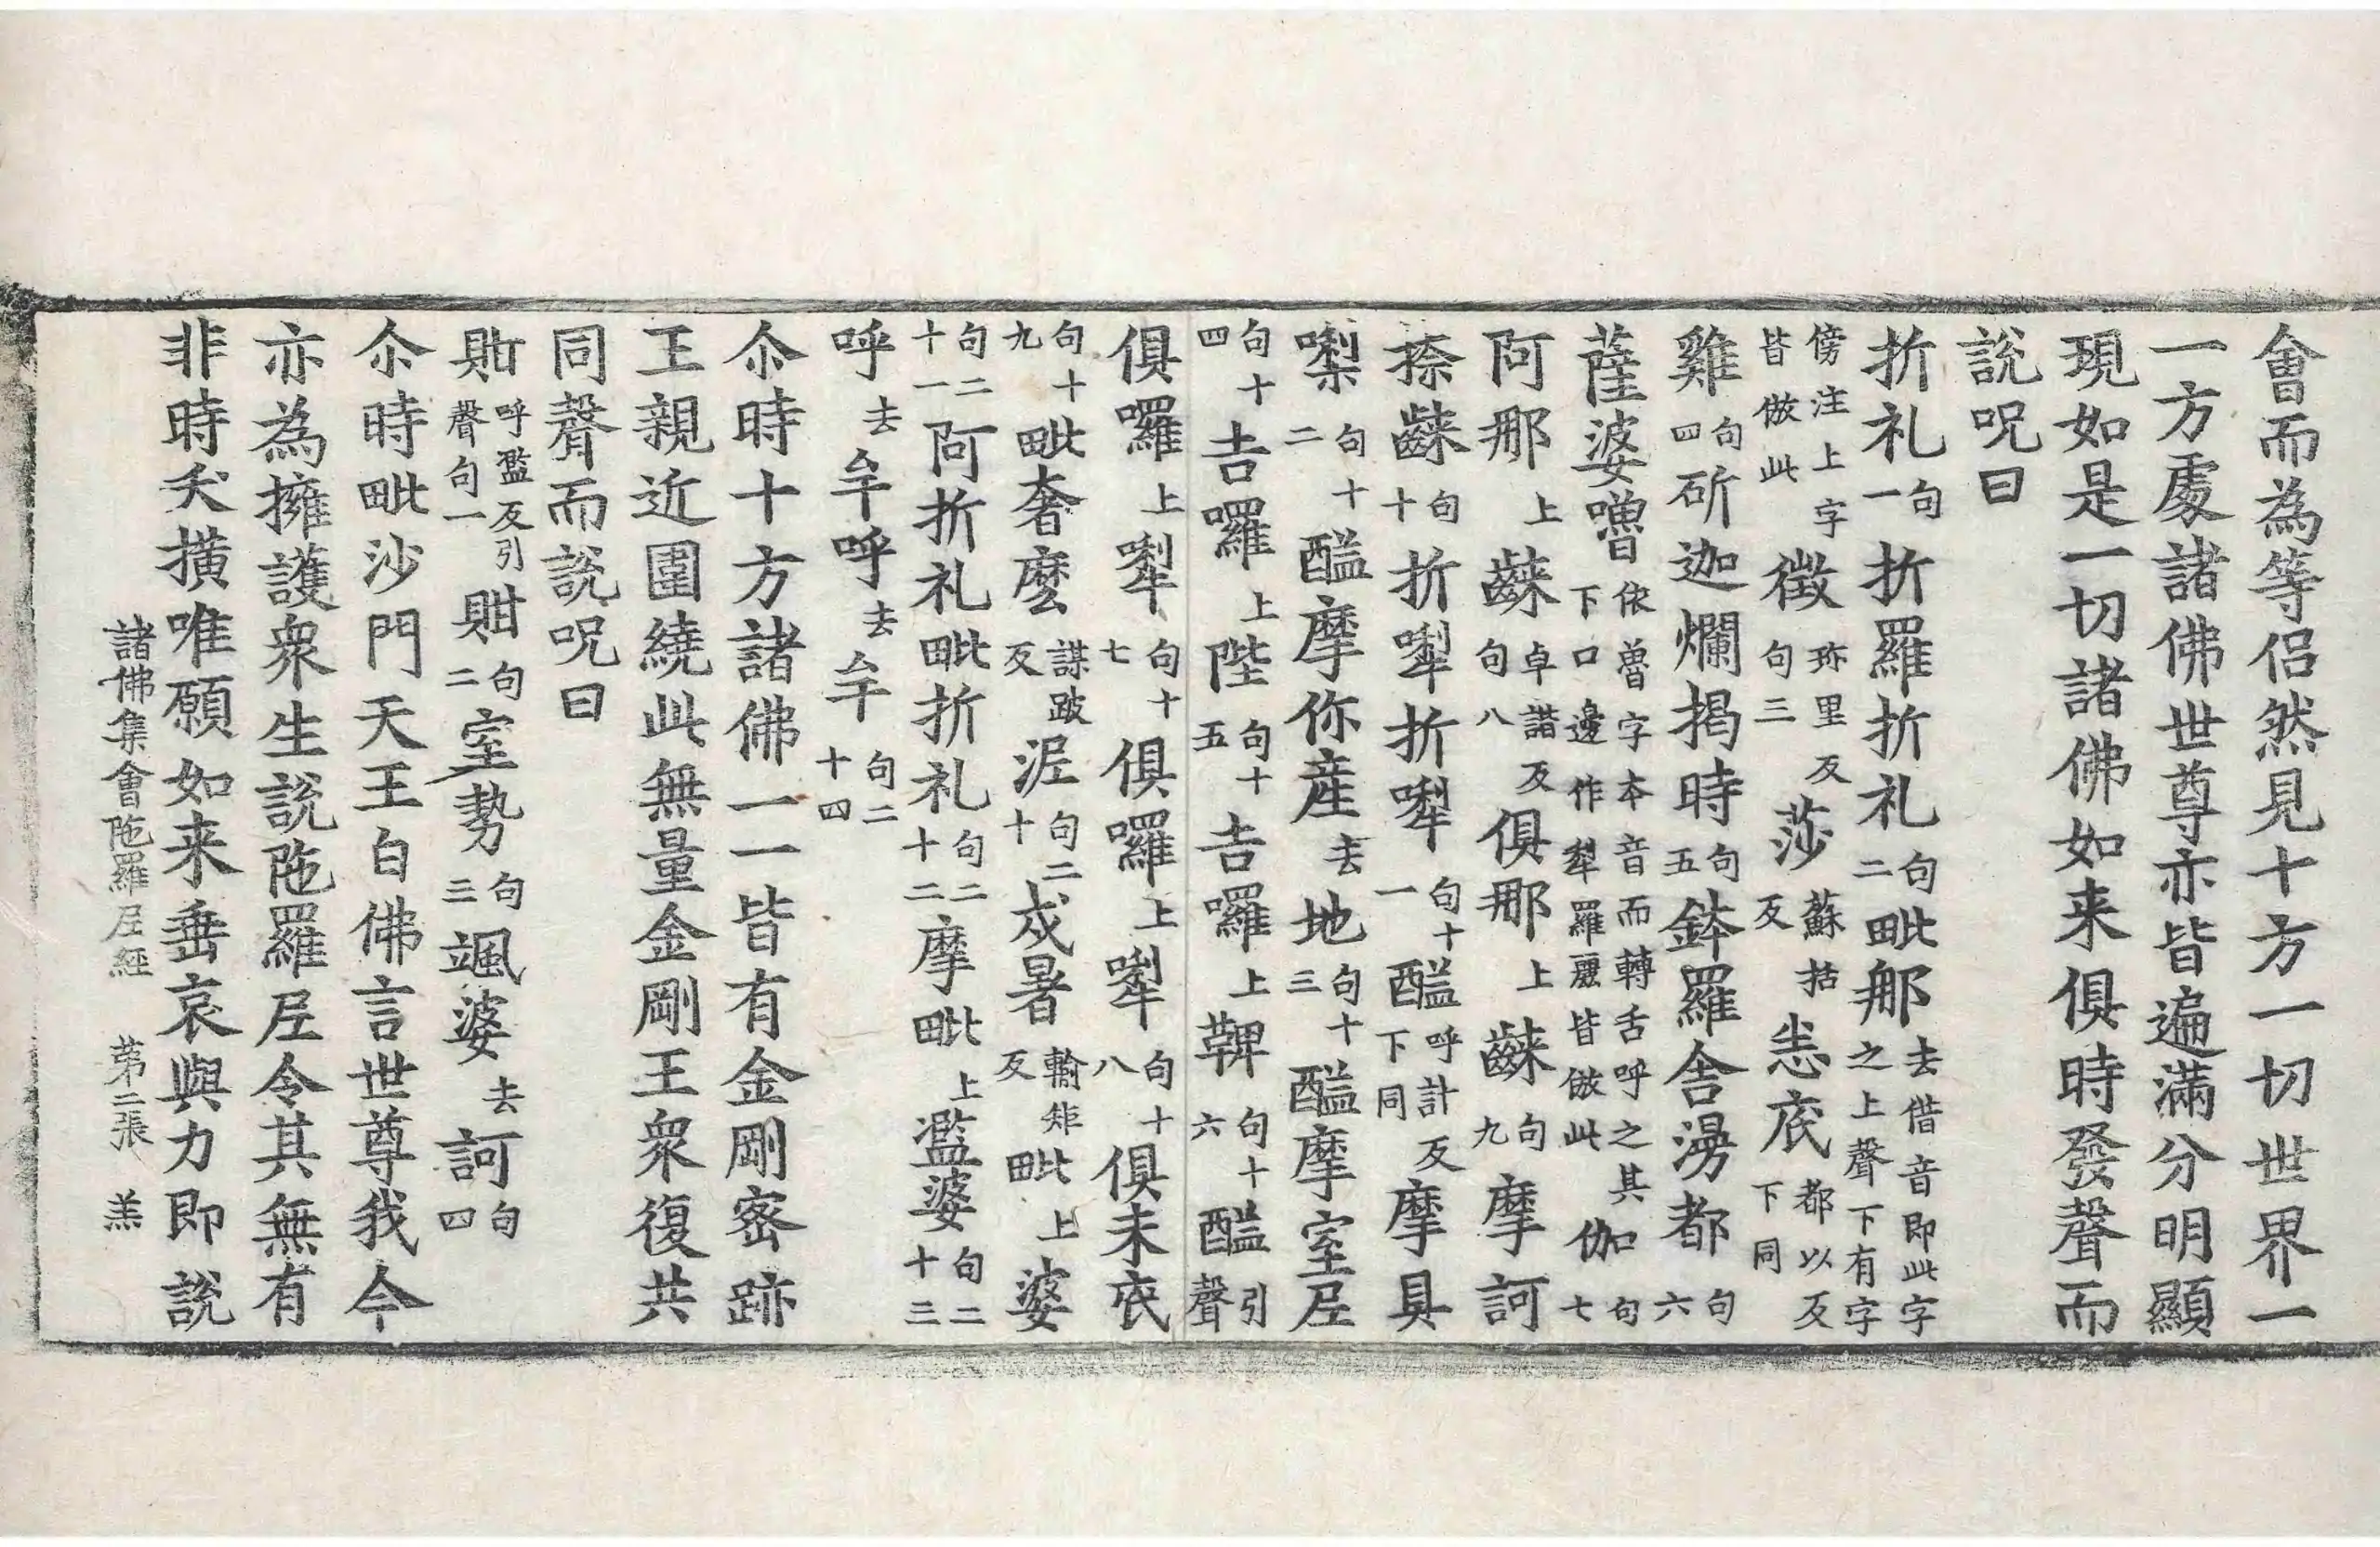 會而為等侣然見十方一切世界一
一方處諸佛世尊亦皆遍滿分明顯
現如是一切諸佛如来俱時發聲而
說呪曰
折礼句一折羅折礼句二毗那去借音即此字之上聲下有字
傍注上字皆倣此徵弥里反句三莎蘇括反恙底都以反下同
雞句四斫迦爛揭時句五鉢羅舍湯都句六
薩婆嚕依魯字本音而轉舌呼之其下口邊作犁羅麗皆倣此伽句七
阿那上𪘨卓諧反句八俱那上𪘨句九摩訶
捺𪘨句十折㘑折㘑句十一醯呼計反下同摩具
㗚句十二醯摩你産去地句十三醯摩室𡰱
句十四吉囉上陛句十五吉囉上鞞句十六醯引聲
俱囉上㘑句十七俱囉上㘑句十八俱末底
句十九毗奢麽謀跛反泥句二十戍暑輸矩反毗上婆
句二十一阿折礼毗折礼句二十二摩毗上濫婆句二十三
呼去㭌呼去㭌句二十四
尒時十方諸佛一一皆有金剛密跡
王親近圍繞此無量金剛王衆復共
同聲而說呪曰
㽃呼濫反引聲句一㽃句二室勢句三颯婆去訶句四
尒時毗沙門天王白佛言世尊我今
亦為擁護衆生說陁羅𡰱令其無有
非時夭橫唯願如来垂哀與力即說
諸佛集會陁羅𡰱經 第二張 羔